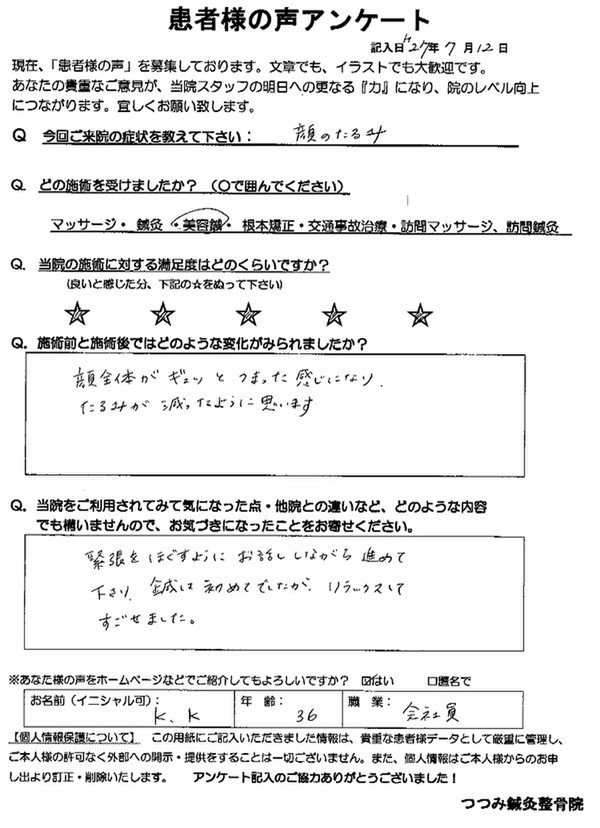 患者様の声アンケート
記入日 H27年 7月 12日
現在、「患者様の声」を募集しております。文章でも、イラストでも大歓迎です。
あなたの貴重なご意見が、当院スタッフの明日への更なる『力』になり、院のレベル向上
につながります。宜しくお願い致します。
Q 今回ご来院の症状を教えて下さい： 顔のたるみ
Q. どの施術を受けましたか？ （〇で囲んでください）
マッサージ・ 鍼灸 ・美容鍼・ 根本矯正・交通事故治療・訪問マッサージ、訪問鍼灸
Q. 当院の施術に対する満足度はどのくらいですか？
（良いと感じた分、下記の☆をぬって下さい）
☆ ☆ ☆ ☆ ☆
Q. 施術前と施術後ではどのような変化がみられましたか？
顔全体がギュッとつまった感じになり、
たるみが減ったように思います
Q. 当院をご利用されてみて気になった点・他院との違いなど、どのような内容
でも構いませんので、お気づきになったことをお寄せください。
緊張をほぐすようにお話ししながら進めて
下さり、鍼は初めてでしたが、リラックスして
すごせました。
※あなた様の声をホームページなどでご紹介してもよろしいですか？ ☑はい □匿名で
お名前（イニシャル可）： K、K 年 齢： 36 職 業： 会社員
【個人情報保護について】 この用紙にご記入いただきました情報は、貴重な患者様データとして厳重に管理し、
ご本人様の許可なく外部への開示・提供をすることは一切ございません。また、個人情報はご本人様からのお申
し出より訂正・削除いたします。 アンケート記入のご協力ありがとうございました！
つつみ鍼灸整骨院